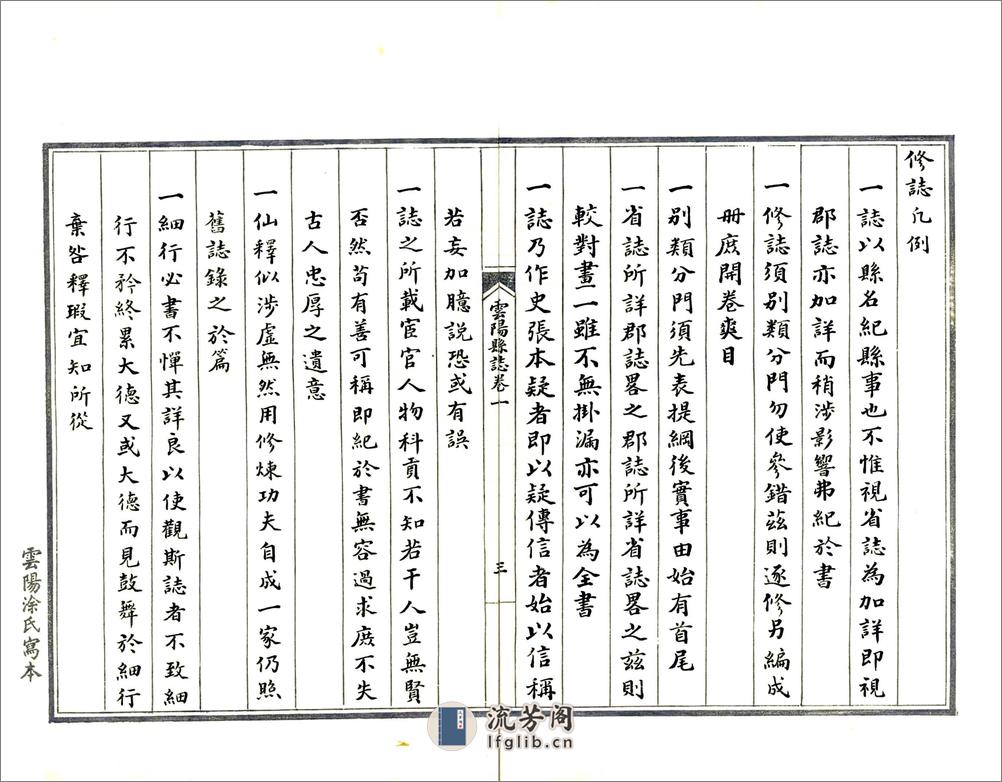 修誌凡例
一誌以縣名紀縣事也不惟視省誌為加詳即視
郡誌亦加詳而稍涉影響弗紀於書
一修誌須別類分門勿使參錯茲則逐修另編成
冊庻開卷爽目
一別類分門須先表提綱後實事由始有首尾
一省誌所詳郡誌畧之郡誌所詳省誌畧之茲則
較對畫一雖不無掛漏亦可以為全書
一誌乃作史張本疑者即以疑傳信者始以信稱
雲陽縣誌卷一
三
若妄加臆説恐或有誤
一誌之所載宦官人物科貢不知若干人豈無賢
否然苟有善可稱即紀於書無容過求庻不失
古人忠厚之遺意
一仙釋似涉虛無然用修煉功夫自成一家仍照
舊誌錄之於篇
一細行必書不憚其詳良以使觀斯誌者不致細
行不矜終累大德又或大德而見鼓舞於細行
棄咎釋瑕宜知所從
雲陽涂氏寫本
流芳阁
lfglib.cn